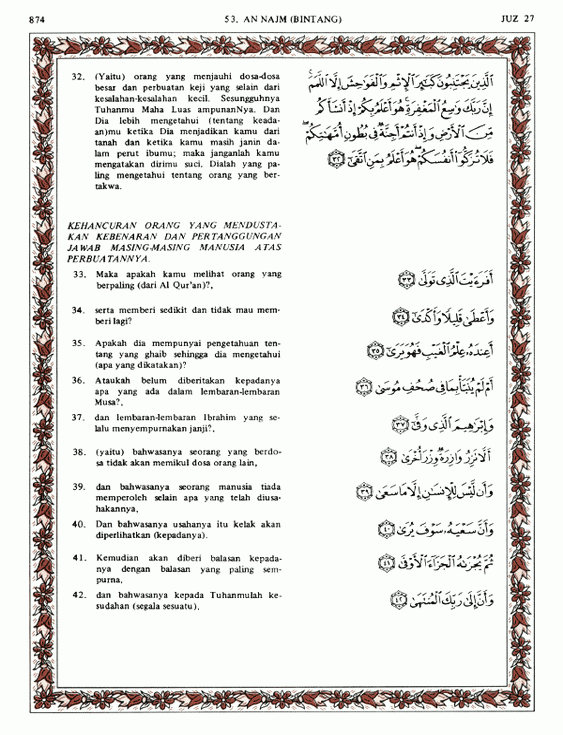 874
53. AN NAJM (BINTANG)
JUZ 27
32. (Yaitu) orang yang menjauhi dosa-dosa
besar dan perbuatan keji yang selain dari
kesalahan-kesalahan kecil. Sesungguhnya
Tuhanmu Maha Luas ampunanNya. Dan
Dia lebih mengetahui (tentang keada-
an)mu ketika Dia menjadikan kamu dari
tanah dan ketika kamu masih janin da-
lam perut ibumu; maka janganlah kamu
mengatakan dirimu suci. Dialah yang pa-
ling mengetahui tentang orang yang ber-
takwa.
الَّذِينَ يَجْتَنِبُونَ كَبَائِرَ الْإِثْمِ وَالْفَوَاحِشَ إِلَّا اللَّمَمَ
إِنَّ رَبَّكَ وَاسِعُ الْمَغْفِرَةِ هُوَ أَعْلَمُ بِكُمْ إِذْ أَنشَأَكُم
مِّنَ الْأَرْضِ وَإِذْ أَنتُمْ أَجِنَّةٌ فِي بُطُونِ أُمَّهَاتِكُمْ
فَلَا تُزَكُّوا أَنفُسَكُمْ هُوَ أَعْلَمُ بِمَنِ اتَّقَىٰ ٣٢
KEHANCURAN ORANG YANG MENDUSTA-
KAN KEBENARAN DAN PERTANGGUNGAN
JAWAB MASING-MASING MANUSIA ATAS
PERBUATANNYA.
33. Maka apakah kamu melihat orang yang
berpaling (dari Al Qur'an)?,
أَفَرَءَيْتَ الَّذِي تَوَلَّىٰ ٣٣
34. serta memberi sedikit dan tidak mau mem-
beri lagi?
وَأَعْطَىٰ قَلِيلًا وَأَكْدَىٰ ٣٤
35. Apakah dia mempunyai pengetahuan ten-
tang yang ghaib sehingga dia mengetahui
(apa yang dikatakan)?
أَعِندَهُ عِلْمُ الْغَيْبِ فَهُوَ يَرَىٰ ٣٥
36. Ataukah belum diberitakan kepadanya
apa yang ada dalam lembaran-lembaran
Musa?,
أَمْ لَمْ يُنَبَّأْ بِمَا فِي صُحُفِ مُوسَىٰ ٣٦
37. dan lembaran-lembaran Ibrahim yang se-
lalu menyempurnakan janji?,
وَإِبْرَاهِيمَ الَّذِي وَفَّىٰ ٣٧
38. (yaitu) bahwasanya seorang yang berdo-
sa tidak akan memikul dosa orang lain,
أَلَّا تَزِرُ وَازِرَةٌ وِزْرَ أُخْرَىٰ ٣٨
39. dan bahwasanya seorang manusia tiada
memperoleh selain apa yang telah diusa-
hakannya,
وَأَن لَّيْسَ لِلْإِنسَانِ إِلَّا مَا سَعَىٰ ٣٩
40. Dan bahwasanya usahanya itu kelak akan
diperlihatkan (kepadanya).
وَأَنَّ سَعْيَهُ سَوْفَ يُرَىٰ ٤٠
41. Kemudian akan diberi balasan kepada-
nya dengan balasan yang paling sem-
purna,
ثُمَّ يُجْزَىٰهُ الْجَزَاءَ الْأَوْفَىٰ ٤١
42. dan bahwasanya kepada Tuhanmulah ke-
sudahan (segala sesuatu),
وَأَنَّ إِلَىٰ رَبِّكَ الْمُنتَهَىٰ ٤٢